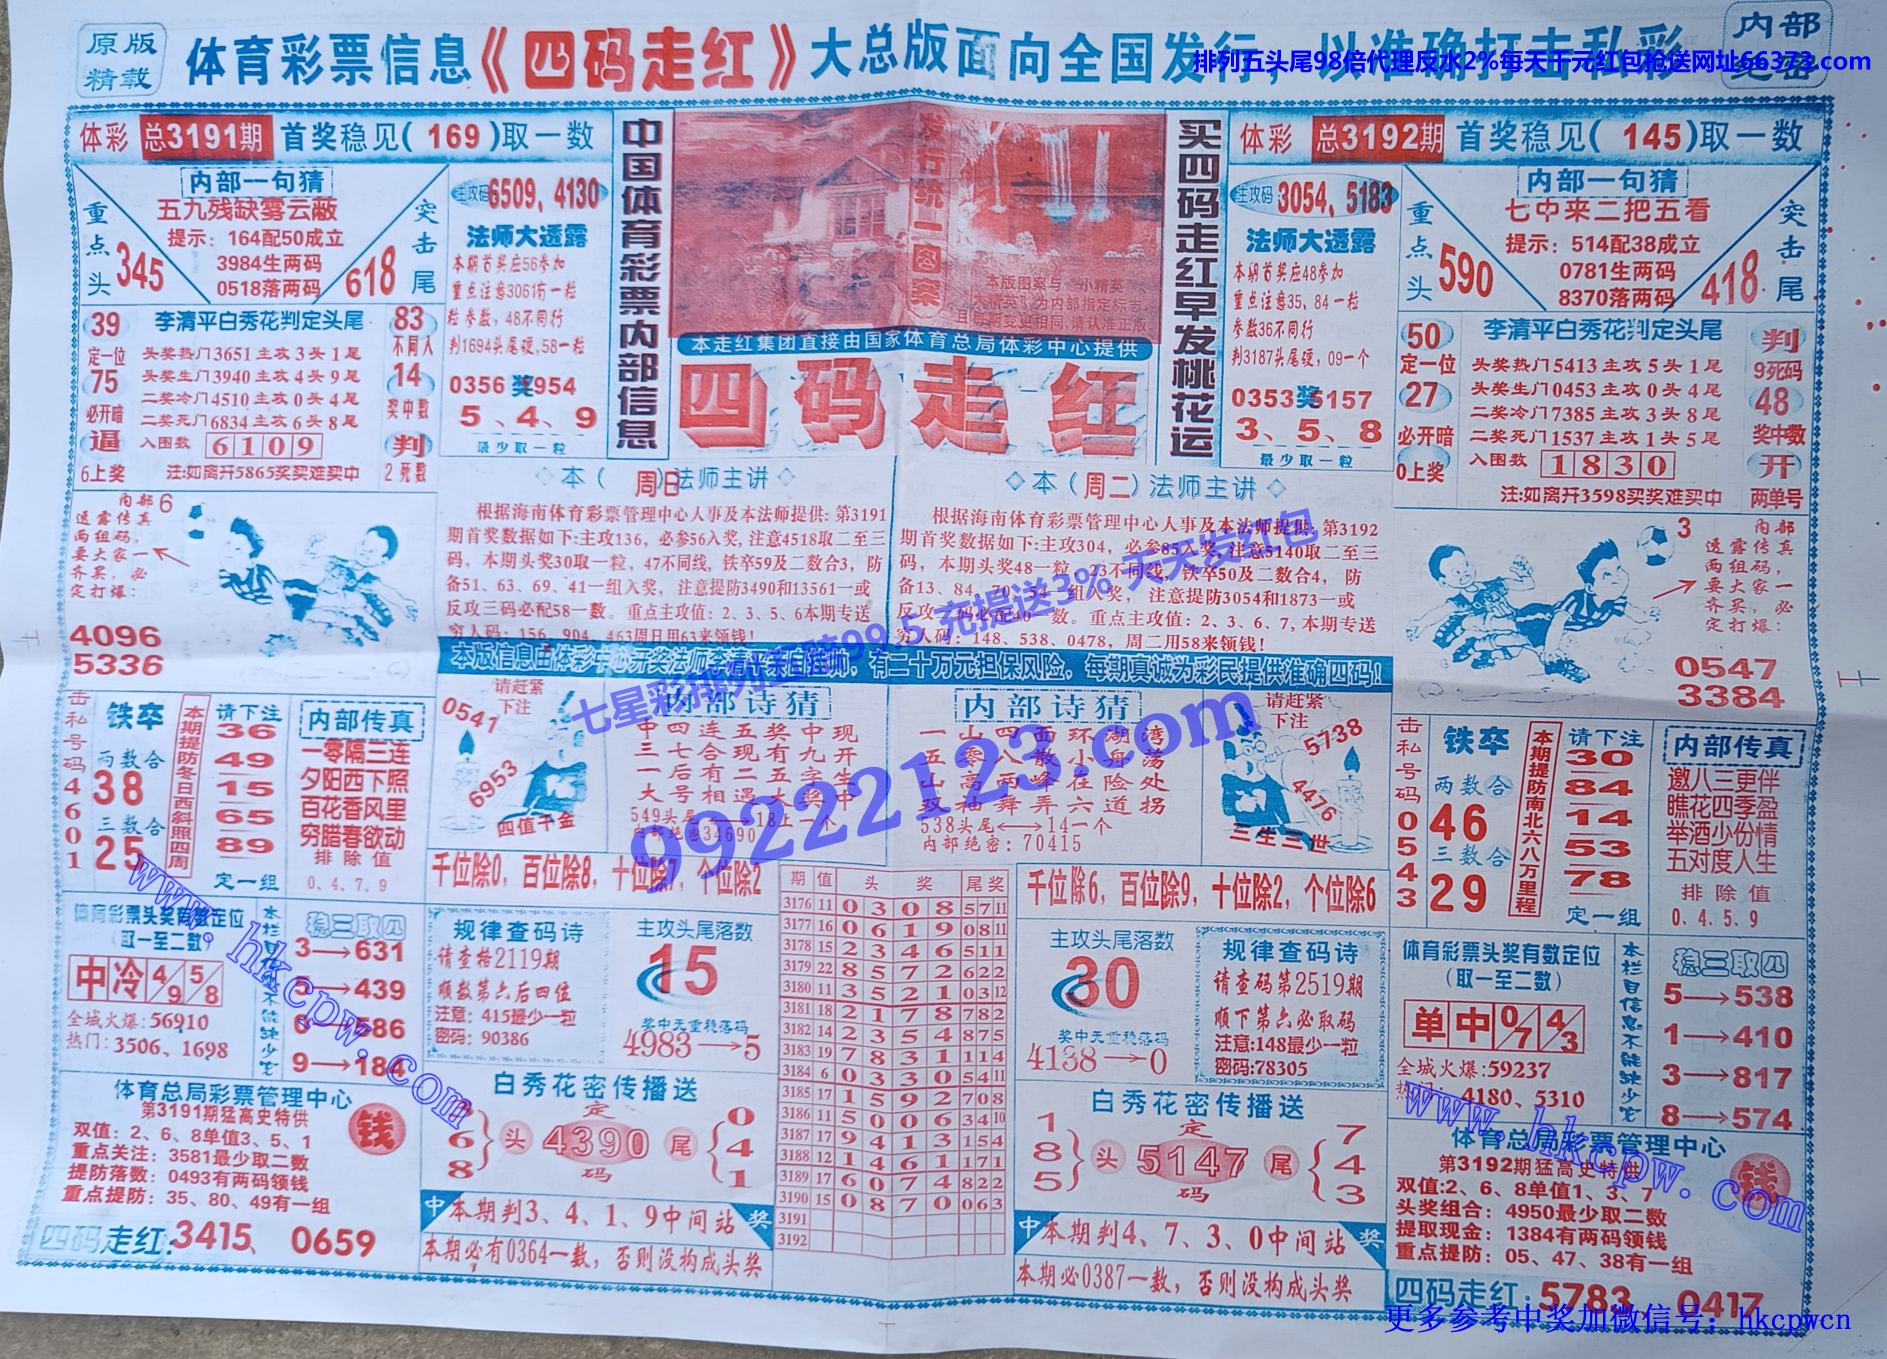 原版
精载
体育彩票信息《四码走红》大总版面向全国发行，以准确打击私彩
内部
绝密
排列五头尾98倍代理反水2%每天千元红包抢送网址66373.com
体彩 总3191期 首奖稳见(169)取一数
内部一句猜
五九残缺雾云蔽
提示：164配50成立
3984生两码
0518落两码
重点头
345
突击尾
618
主攻码 6509、4130
法师大透露
本期首奖应56参加
重点注意3061仿一粒
粒参数，48不同行
判1694头尾硬,58一粒
0356奖954
5、4、9
最少取一粒
39
定一位
75
必开暗
逼
6上奖
李清平白秀花判定头尾
头奖热门3651主攻3头1尾
头奖生门3940主攻4头9尾
二奖冷门4510主攻0头4尾
二奖死门6834主攻6头8尾
入围数 6109
注:如离开5865奖买难买中
83
不同人
14
奖中数
判
2死数
中国体育彩票内部信息
发行统一图案
本版图案与“小精英”
“大精英”为内部指定标志，
且每期变更相同,请认准正版
本走红集团直接由国家体育总局体彩中心提供
四码走红
买四码走红早发桃花运
体彩 总3192期 首奖稳见(145)取一数
主攻码 3054、5183
法师大透露
本期首奖应48参加
重点注意35、84一粒
参数36不同行
判3187头尾硬，09一个
0353奖5157
3、5、8
最少取一粒
内部一句猜
七中来二把五看
提示：514配38成立
0781生两码
8370落两码
重点头
590
突击尾
418
50
定一位
27
必开暗
0上奖
李清平白秀花判定头尾
头奖热门5413主攻5头1尾
头奖生门0453主攻0头4尾
二奖冷门7385主攻3头8尾
二奖死门1537主攻1头5尾
入围数 1830
注:如离开3598买奖难买中
判
9死码
48
奖中数
开
两单号
内部6
透露传真
两组码，
要大家一
齐买，必
定打爆：
4096
5336
◇本(周日)法师主讲◇
根据海南体育彩票管理中心人事及本法师提供：第3191
期首奖数据如下:主攻136，必参56入奖，注意4518取二至三
码，本期头奖30取一粒，47不同线，铁卒59及二数合3，防
备51、63、69、41一组入奖，注意提防3490和13561一或
反攻三码必配58一数。重点主攻值：2、3、5、6本期专送
穷人码：156、904、463周日用63来领钱！
◇本(周二)法师主讲◇
根据海南体育彩票管理中心人事及本法师提供：第3192
期首奖数据如下:主攻304，必参85入奖，注意5140取二至三
码，本期头奖48一粒，23不同线，铁卒50及二数合4，防
备13、84、70、54一组入奖，注意提防3054和1873一或
反攻三码必配40一数。重点主攻值：2、3、6、7,本期专送
穷人码：148、538、0478，周二用58来领钱！
3
内部
透露传真
两组码，
要大家一
齐买，必
定打爆：
0547
3384
本版信息由体彩中心开奖法师李清平来自推师，有二十万元担保风险，每期真诚为彩民提供准确四码！
七星彩排列五赔99.5 充提送3% 天天发红包
99222123.com
击私号码4601
铁卒
两数合
38
三数合
25
本期提防冬日西斜照四周
请下注
36
49
15
65
89
定一组
内部传真
一零隔三连
夕阳西下照
百花香风里
穷腊春欲动
排除值
0、4、7、9
请赶紧
下注
0541
6953
四值千金
内部诗猜
中四连五奖中现
三七合现有九开
一后有二五字生
大号相遇大奖中
549头尾⟷18上一个
内部绝密34690
内部诗猜
一山四面环湖湾
五零八散小舟荡
山高两峰在险处
双袖舞弄六道拐
538头尾⟷14一个
内部绝密：70415
请赶紧
下注
5738
4476
三生三世
击私号码0543
铁卒
两数合
46
三数合
29
本期提防南北六八万里程
请下注
30
84
14
53
78
定一组
内部传真
邀八三更伴
瞧花四季盈
举酒少份情
五对度人生
排除值
0、4、5、9
千位除0，百位除8，十位除7，个位除2
千位除6，百位除9，十位除2，个位除6
体育彩票头奖有数定位
(取一至二数)
中冷 4/9 5/8
全城火爆：56910
热门：3506、1698
本栏目信息不能缺少它
稳三取四
3→631
439
586
9→184
规律查码诗
请查格2119期
顺数第六后四位
注意：415最少一粒
密码：90386
主攻头尾落数
15
奖中无重稳落码
4983→5
期 值 头奖 尾奖
3176 11 0308 57 11
3177 16 0619 08 11
3178 15 2346 511
3179 22 8572 622
3180 11 3521 03 12
3181 18 2178 782
3182 14 2354 875
3183 19 7831 114
3184 6 0330 54 11
3185 17 1592 708
3186 11 5006 34 10
3187 17 9413 154
3188 12 1461 171
3189 17 6074 822
3190 15 0870 063
3191
3192
主攻头尾落数
30
奖中无重稳落码
4138→0
规律查码诗
请查码第2519期
顺下第六必取码
注意:148最少一粒
密码:78305
体育彩票头奖有数定位
(取一至二数)
单中 0/7 4/3
全城火爆：59237
热门：4180、5310
本栏目信息不能缺少它
稳三取四
5→538
1→410
3→817
8→574
体育总局彩票管理中心
第3191期猛高史特供
钱
双值：2、6、8单值3、5、1
重点关注：3581最少取二数
提防落数：0493有两码领钱
重点提防：35、80、49有一组
四码走红：3415、0659
白秀花密传播送
6 8 头 定 4390 码 尾 0 4 1
中 本期判3、4、1、9中间站 奖
本期必有0364一数，否则没构成头奖
白秀花密传播送
1 8 5 头 定 5147 码 尾 7 4 3
中 本期判4、7、3、0中间站 奖
本期必0387一数，否则没构成头奖
体育总局彩票管理中心
第3192期猛高史特供
钱
双值:2、6、8单值1、3、7
头奖组合：4950最少取二数
提取现金：1384有两码领钱
重点提防：05、47、38有一组
四码走红：5783、0417
www.hkcpw.com
www.hkcpw.com
更多参考中奖加微信号：hkcpwcn